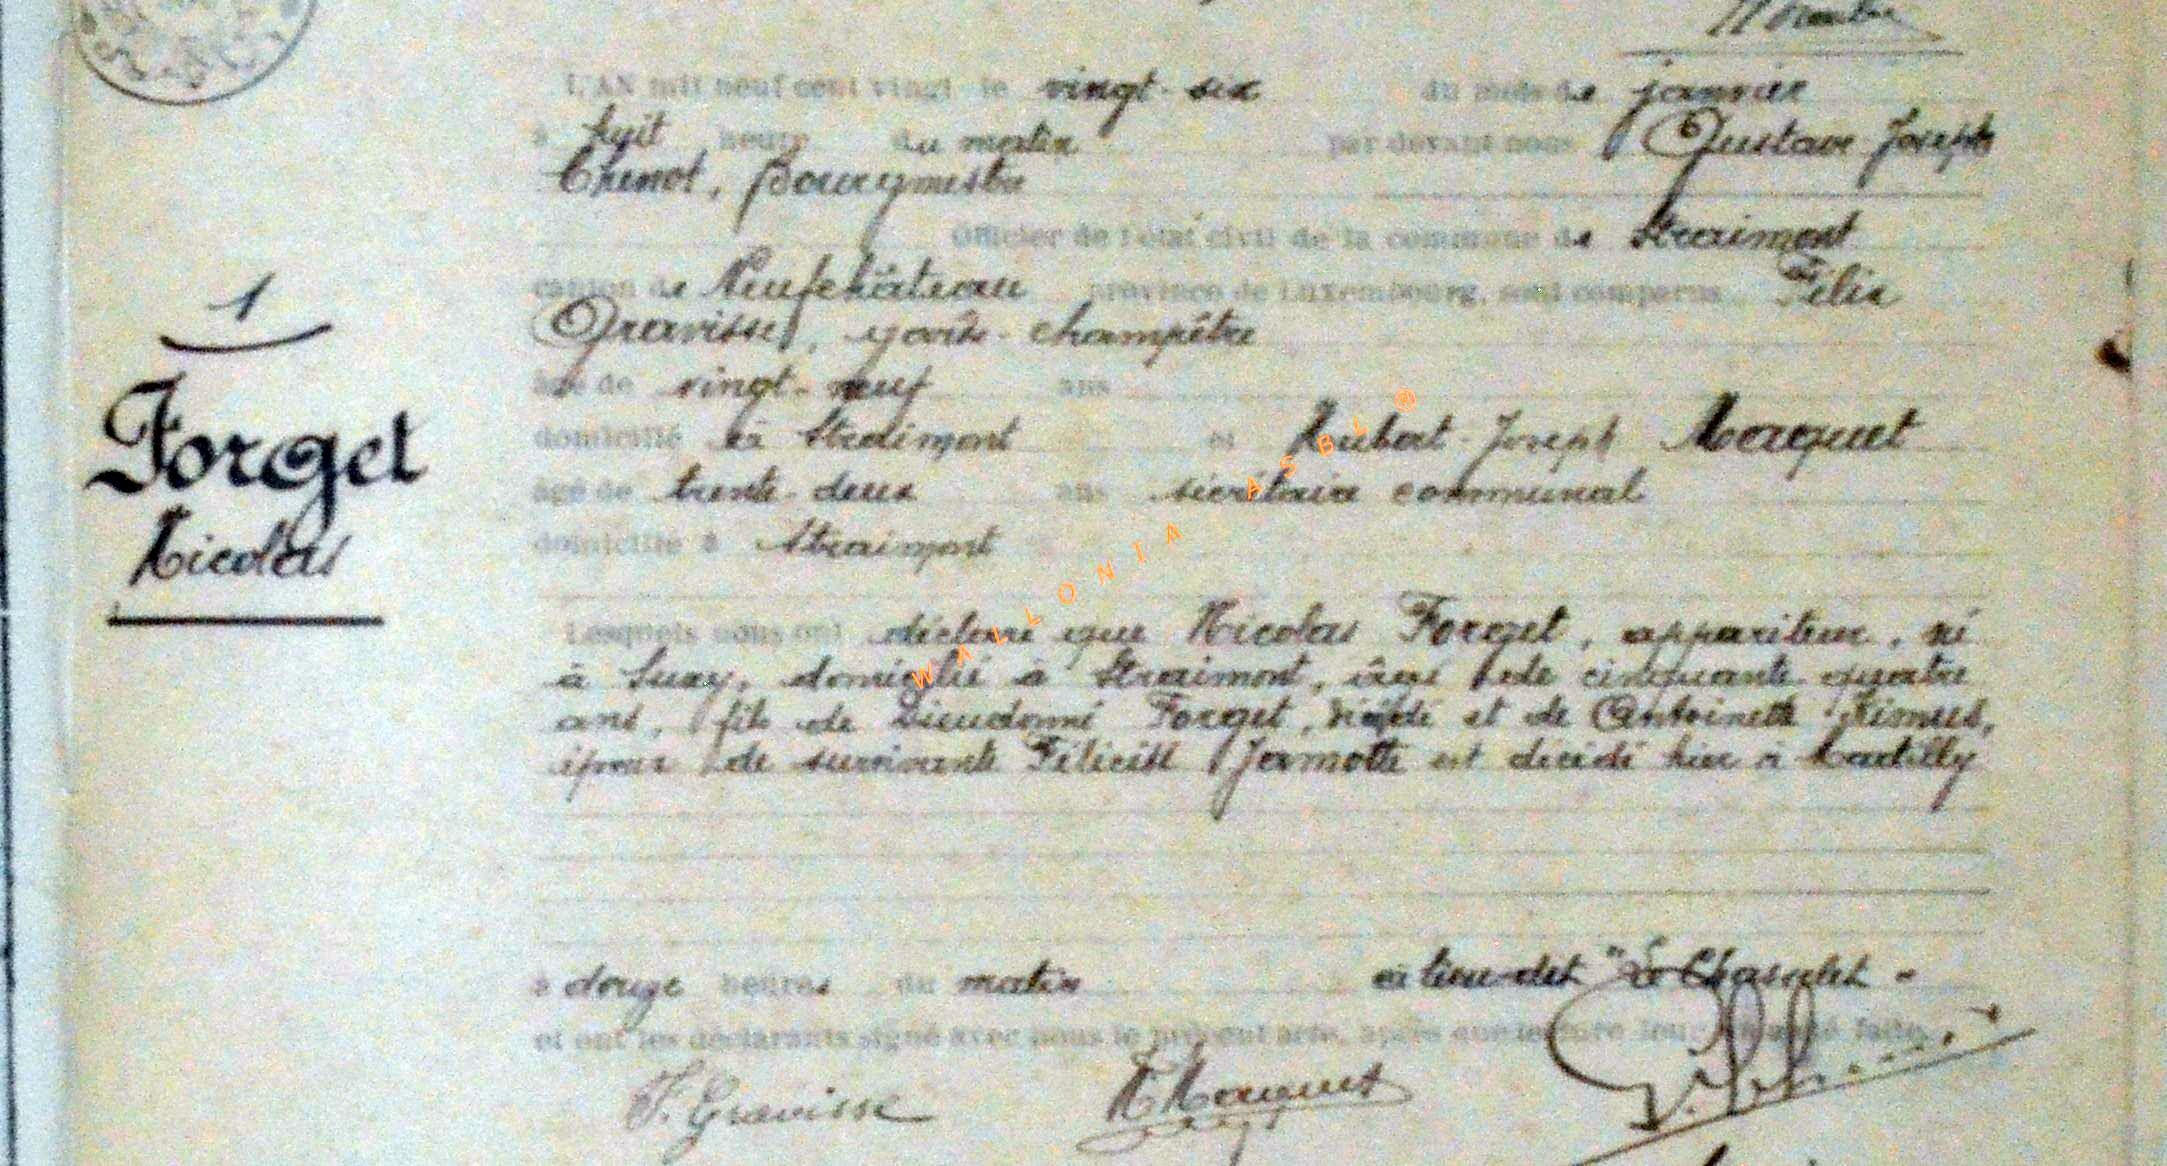 L'AN mil neuf cent vingt le vingt-six du mois de janvier
à huit heure du matin par devant nous Gustave Joseph
Bourgmestre
Officier de l'état civil de la commune de Straimont
canton de Neufchâteau province de Luxembourg, sont comparus Félix
Gravisse, garde-champêtre
âgé de vingt-neuf ans
domicilié à Straimont et Hubert-Joseph Macquet
âgé de trente-deux ans secrétaire communal
domicilié à Straimont
1
Forget
Nicolas
Lesquels nous ont déclaré que Nicolas Forget, appariteur, né
à Suxy, domicilié à Straimont, âgé de cinquante quatre
ans, fils de Dieudonné Forget, décédé et de Antoinette
époux de survivante Félicité Jamotte est décédé hier à Martilly
à douze heures du matin au lieu-dit "Le Chasselet"
et ont les déclarants signé avec nous le présent acte, après que lecture leur en a été faite.
F. Gravisse H Macquet
WALLONIA ASBL ®